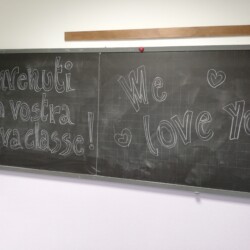 nvenuti
vostra
vaclasse!
We
love Yo